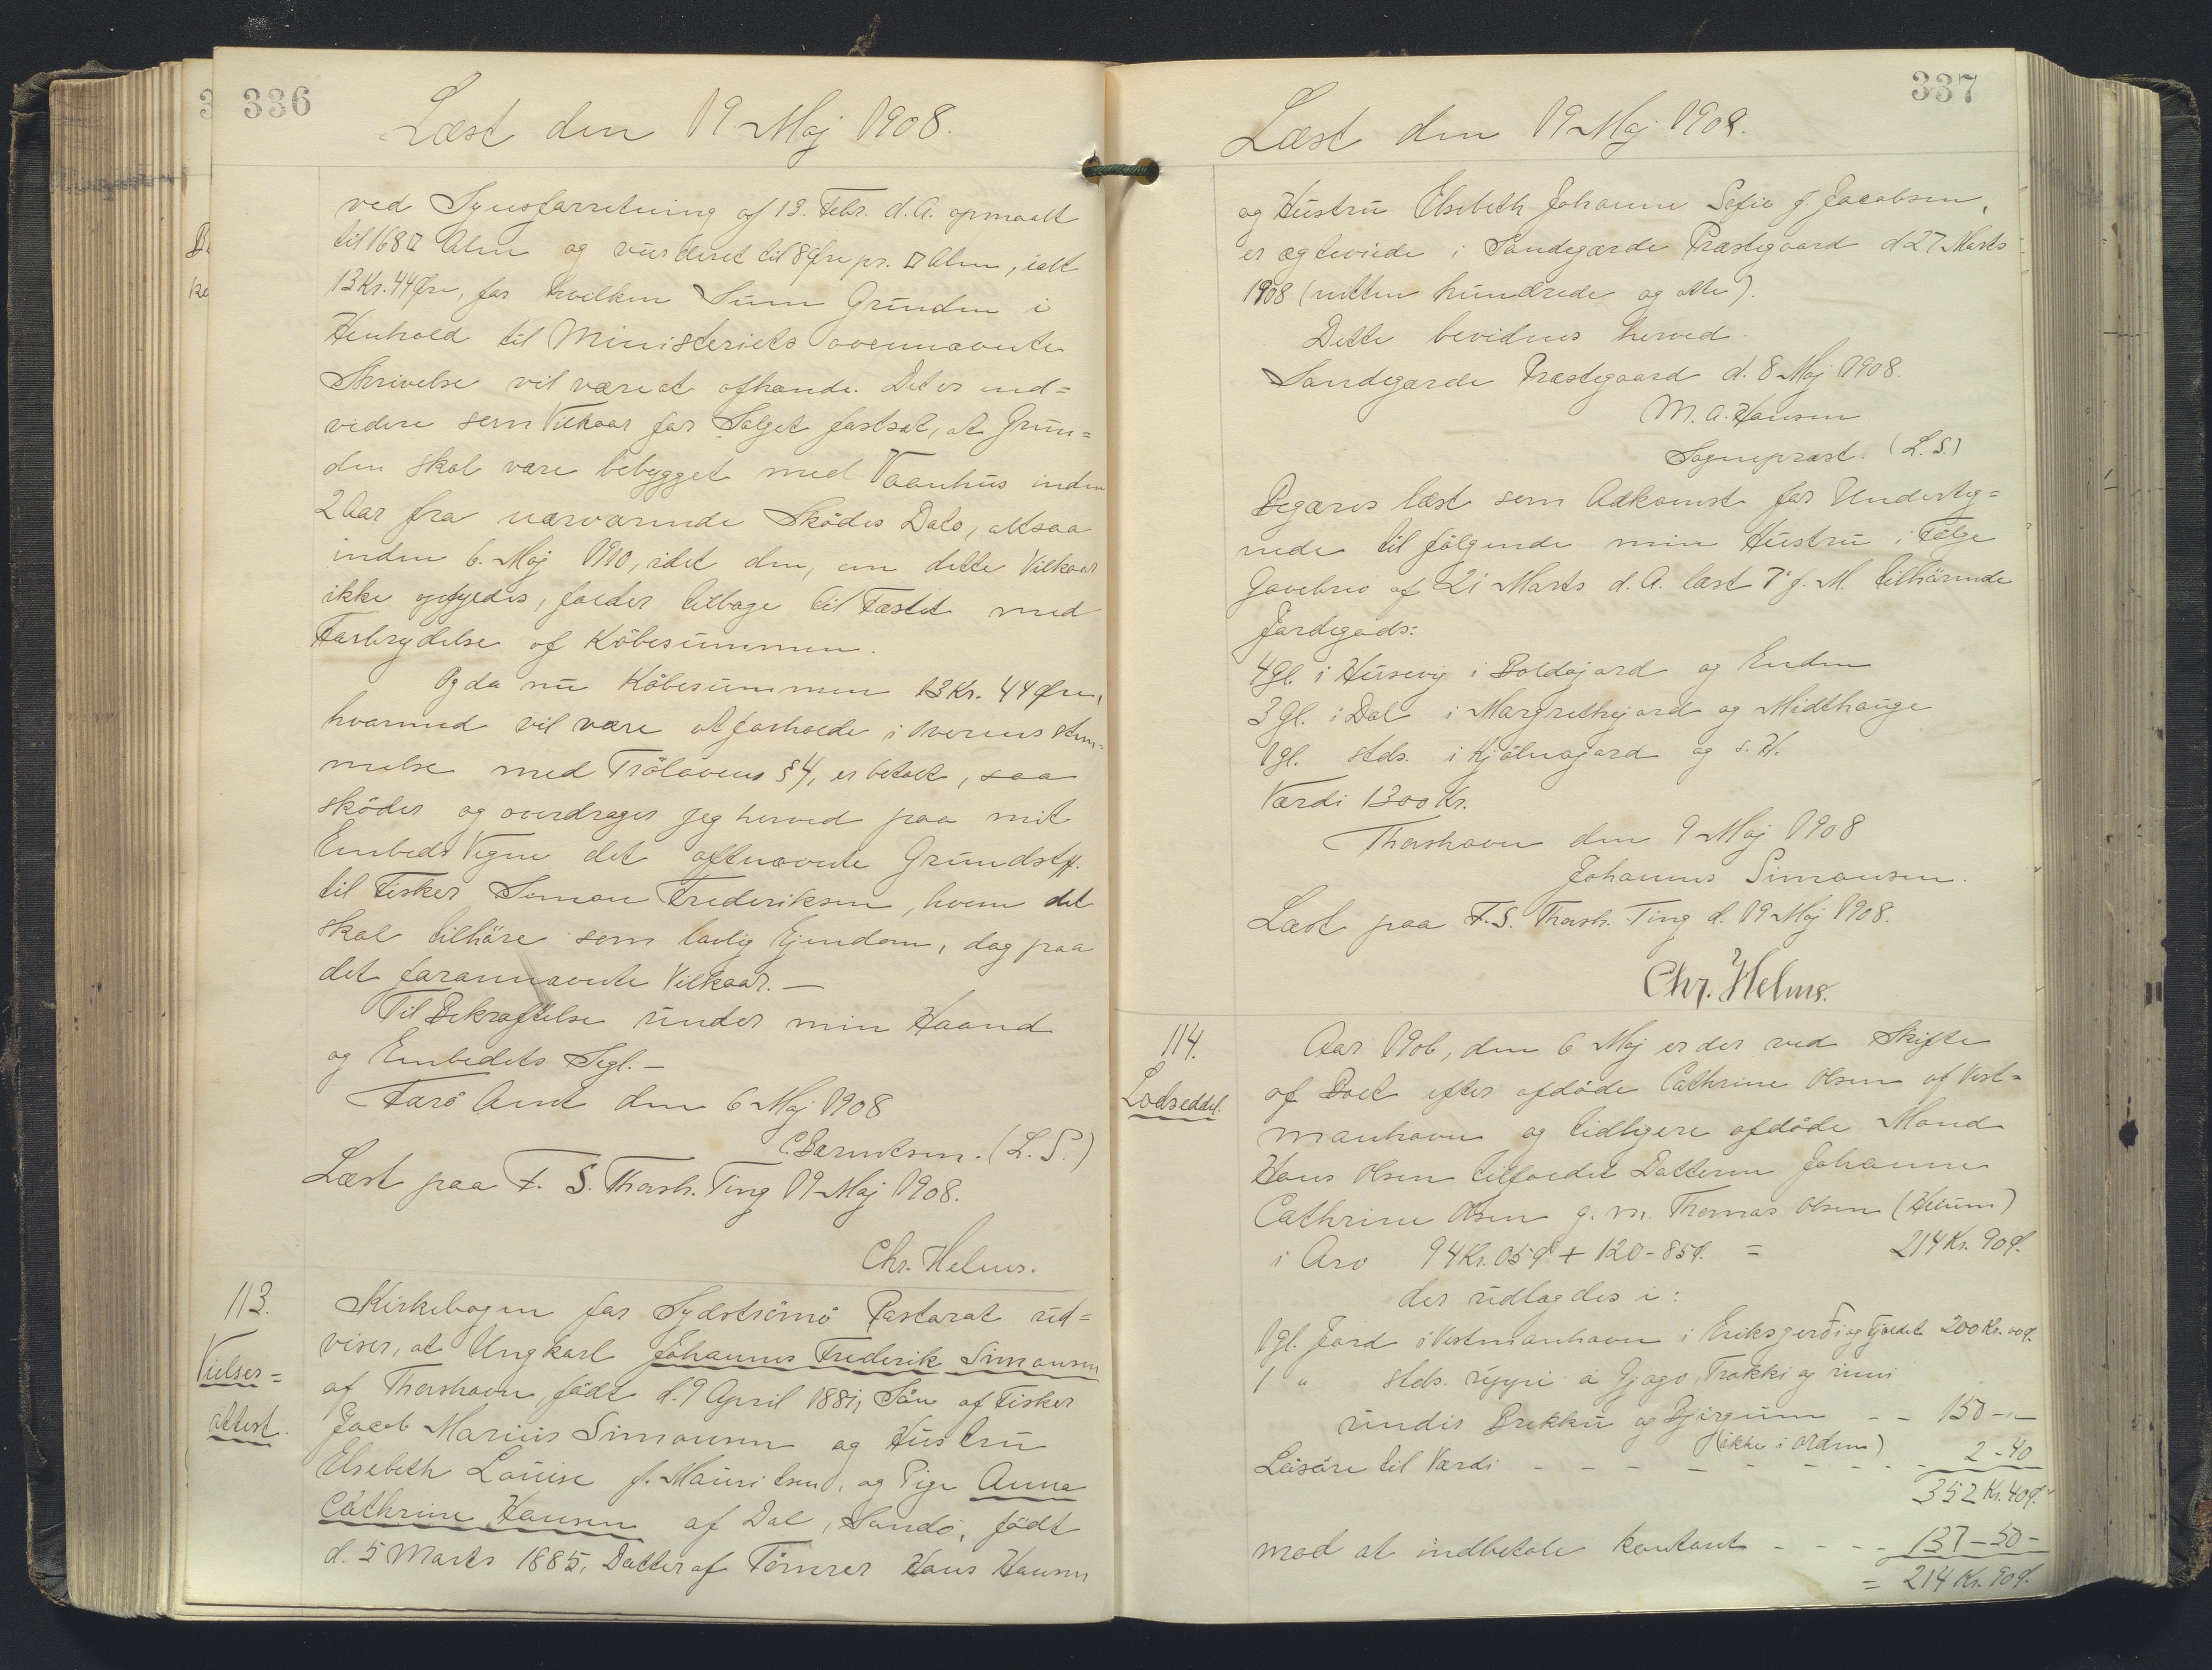 336
Læst den 19 Maj 1908.
ved Synsforretning af 13. Febr. d.A. opmaalt
til 168 □ Alen og vurderet til 8 Øre pr. □ Alen, ialt
13 Kr. 44 Øre, for hvilken Sum Grunden i
Henhold til Ministeriets ovennævnte
Skrivelse vil være at afhænde. Det er end=
videre som Vilkaar for Salget fastsat, at Grun=
den skal være bebygget med Vaanhus inden
2 Aar fra nærværende Skødes Dato, altsaa
inden 6. Maj 1910, idet den, om dette Vilkaar
ikke opfyldes, falder tilbage til Fæstet med
Forbrydelse af Købesummen.
Og da nu Købesummen 13 Kr. 44 Øre,
hvormed vil være at forholde i Overensstem=
melse med Trölovens § 4, er betalt, saa
skøder og overdrager jeg herved paa mit
Embeds Vegne det oftnævnte Grundstk.
til Fisker Simon Frederiksen, hvem det
skal tilhøre som lovlig Ejendom, dog paa
det forannævnte Vilkaar. —
Til Bekræftelse under min Haand
og Embedets Segl. —
Færø Amt den 6 Maj 1908
C. Bærentsen. (L.S.)
Læst paa F. S. Thorsh. Ting 19 Maj 1908.
Chr. Helms.
113.
Vielses=
attest.
Kirkebogen for Sydstrømø Pastorat ud=
viser, at Ungkarl Johannes Frederik Simonsen
af Thorshavn, født d. 9 April 1881, Søn af Fisker
Jacob Marius Simonsen og Hustru
Elsebeth Louise f. Mauritsen, og Pige Anna
Cathrine Hansen af Dal, Sandø, født
d. 5 Marts 1885, Datter af Tømrer Hans Hansen
337
Læst den 19 Maj 1908.
og Hustru Elsebeth Johanne Sofie f. Jacobsen,
er ægteviede i Sandegærde Præstegaard d 27 Marts
1908 (nitten hundrede og otte).
Dette bevidnes herved.
Sandegærde Præstegaard d. 8 Maj 1908.
M. A. Hansen
Sognepræst. (L.S.)
Begæres læst som Adkomst for Underteg=
nede til følgende min Hustru i Følge
Gavebrev af 21 Marts d. A. læst 7' f. M. tilhørende
Jordegods:
4 gl. i Husevig i Boldajord og Enden
3 gl. i Dal i Margrethejord og Midthauge
1 gl. stds. i Kjølnajord og s. H.
Værdi 1300 Kr.
Thorshavn den 9 Maj 1908
Johannes Simonsen.
Læst paa F. S. Thorsh. Ting d. 19 Maj 1908.
Chr. Helms.
114.
Lodseddel.
Aar 1906, den 6 Maj er der ved Skifte
af Boet efter afdøde Cathrine Olsen af Vest=
manhavn og tidligere afdøde Mand
Hans Olsen tilfaldet Datteren Johanne
Cathrine Olsen g. m. Thomas Olsen (Heium)
i Arv 94 Kr. 05 Ø + 120-85 Ø. = 214 Kr. 90 Ø.
der udlagdes i:
1 gl. Jord i Vestmanhavn i Eriksgerði og Fjældet 200 Kr. 00 Ø.
1 " stds. uppi á Gjago, Trakki og inni
undir Brekku og Bjørgum - - 150 - "
(ikke i Ordnen)
Løsøre til Værdi - - - - - - - - 2 - 40
352 Kr. 40 Ø.
mod at indbetale kontant - - - - 137 - 50 -
= 214 Kr. 90 Ø.